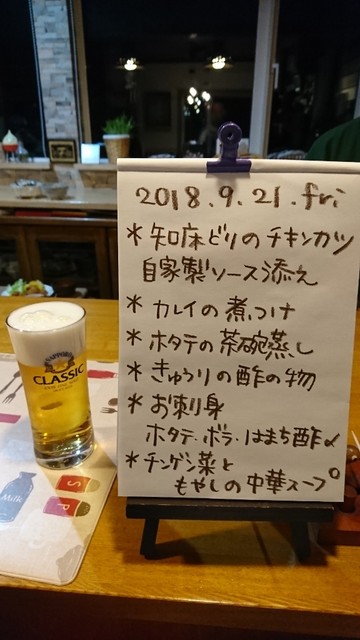 2018.9.21.fri
* 知床どりのチキンカツ
自家製ソース添え
* カレイの煮つけ
* ホタテの茶碗蒸し
* きゅうりの酢の物
* お刺身
ホタテ・ボラ・はまち酢〆
* チンゲン菜と
もやしの中華スープ
SAPPORO
CLASSIC
Milk
S
P